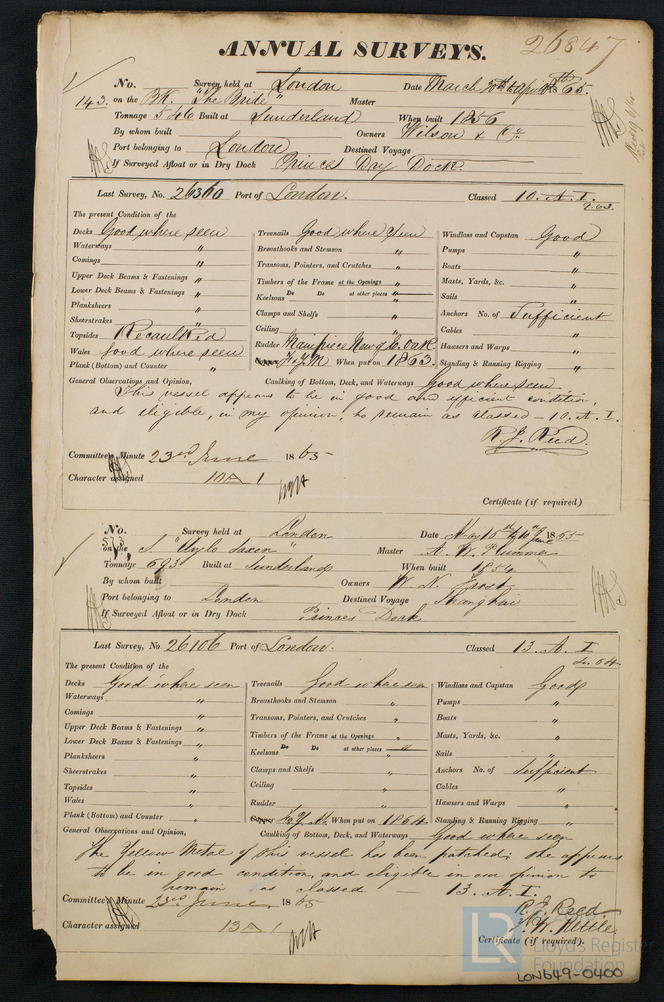 ANNUAL SURVEYS.
26847
No. Survey held at London Date March
143. on the Bk. "The Bride" Master
Tonnage 546 Built at Sunderland When built 1856
By whom built Owners Wilson & Co
Port belonging to London Destined Voyage
If Surveyed Afloat or in Dry Dock Princes Dry Dock.
Last Survey, No. 26360 Port of London. Classed 10. A. I.
The present Condition of the
Decks Good where seen Treenails Good where seen Windlass and Capstan Good
Waterways " Breasthooks and Stemson " Pumps "
Comings " Transoms, Pointers, and Crutches " Boats "
Upper Deck Beams & Fastenings " Timbers of the Frame at the Openings " Masts, Yards, &c. "
Lower Deck Beams & Fastenings " Keelsons Do Do at other places " Sails "
Planksheers " Clamps and Shelfs " Anchors No. of Sufficient
Sheerstrakes " Ceiling " Cables "
Topsides Recaulked Rudder Mainpiece New Oak Hawsers and Warps "
Wales Good where seen When put on 1863. Standing & Running Rigging "
Plank (Bottom) and Counter "
General Observations and Opinion, Caulking of Bottom, Deck, and Waterways Good where seen
This vessel appears to be in good and efficient condition,
and eligible, in my opinion, to remain as classed – 10. A. I.
R. J. Reed.
Committee's Minute 23rd June 1865
Character assigned 10A 1
Certificate (if required)
No. Survey held at London Date May 1865
573 on the S. "Anglo Saxon" Master A. W. Plummer
Tonnage 693 Built at Sunderland When built 1854
By whom built Owners W. N.
Port belonging to London Destined Voyage Shanghai
If Surveyed Afloat or in Dry Dock Princes Dock
Last Survey, No 26106 Port of London. Classed 13. A. I
The present Condition of the
Decks Good where seen Treenails Good where seen Windlass and Capstan Good
Waterways " Breasthooks and Stemson " Pumps "
Comings " Transoms, Pointers, and Crutches " Boats "
Upper Deck Beams & Fastenings " Timbers of the Frame at the Openings " Masts, Yards, &c. "
Lower Deck Beams & Fastenings " Keelsons Do Do at other places " Sails "
Planksheers " Clamps and Shelfs " Anchors No. of Sufficient
Sheerstrakes " Ceiling " Cables "
Topsides " Rudder " Hawsers and Warps "
Wales " When put on 1864. Standing & Running Rigging "
Plank (Bottom) and Counter "
General Observations and Opinion, Caulking of Bottom, Deck, and Waterways Good where seen
The Yellow Metal of this vessel has been patched; she appears
to be in good condition, and eligible in our opinion to
remain as classed – 13. A. I.
R. J. Reed
Committee's Minute 23rd June 1865
Character assigned 13A 1
Certificate (if required).
LR Lloyd's Register
Foundation
LON649-0400